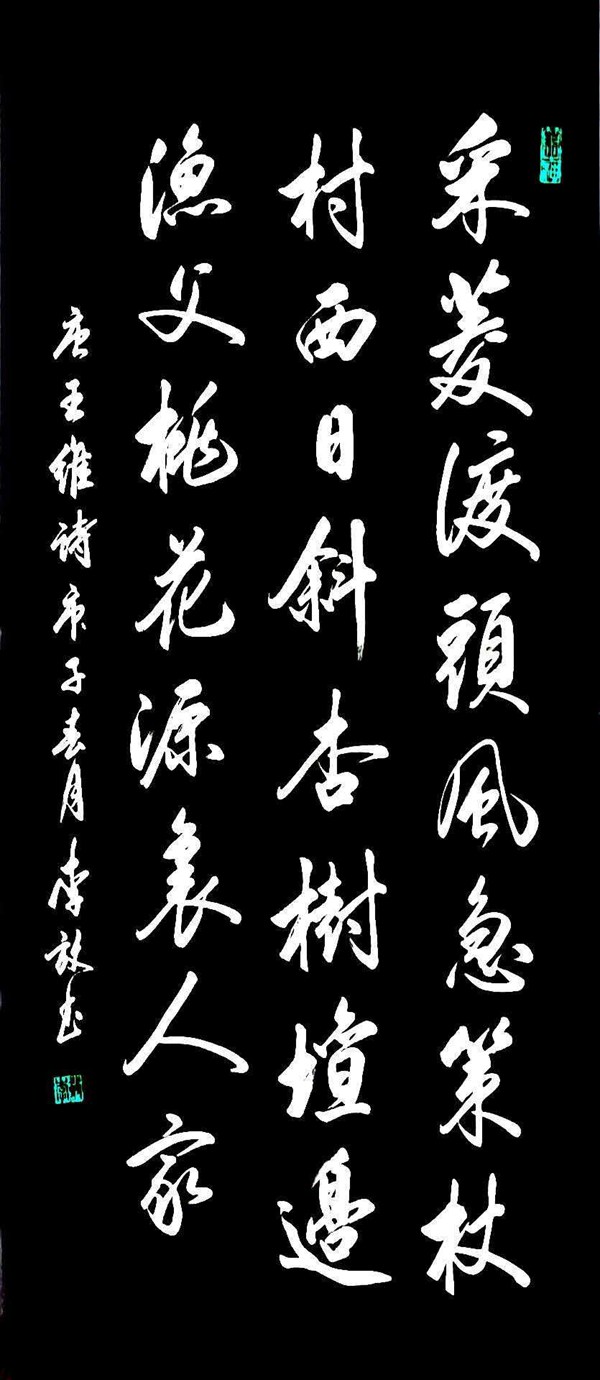 采菱渡頭風急策杖
村西日斜杏樹壇邊
漁父桃花源裏人家
唐王維詩庚子春月李放書